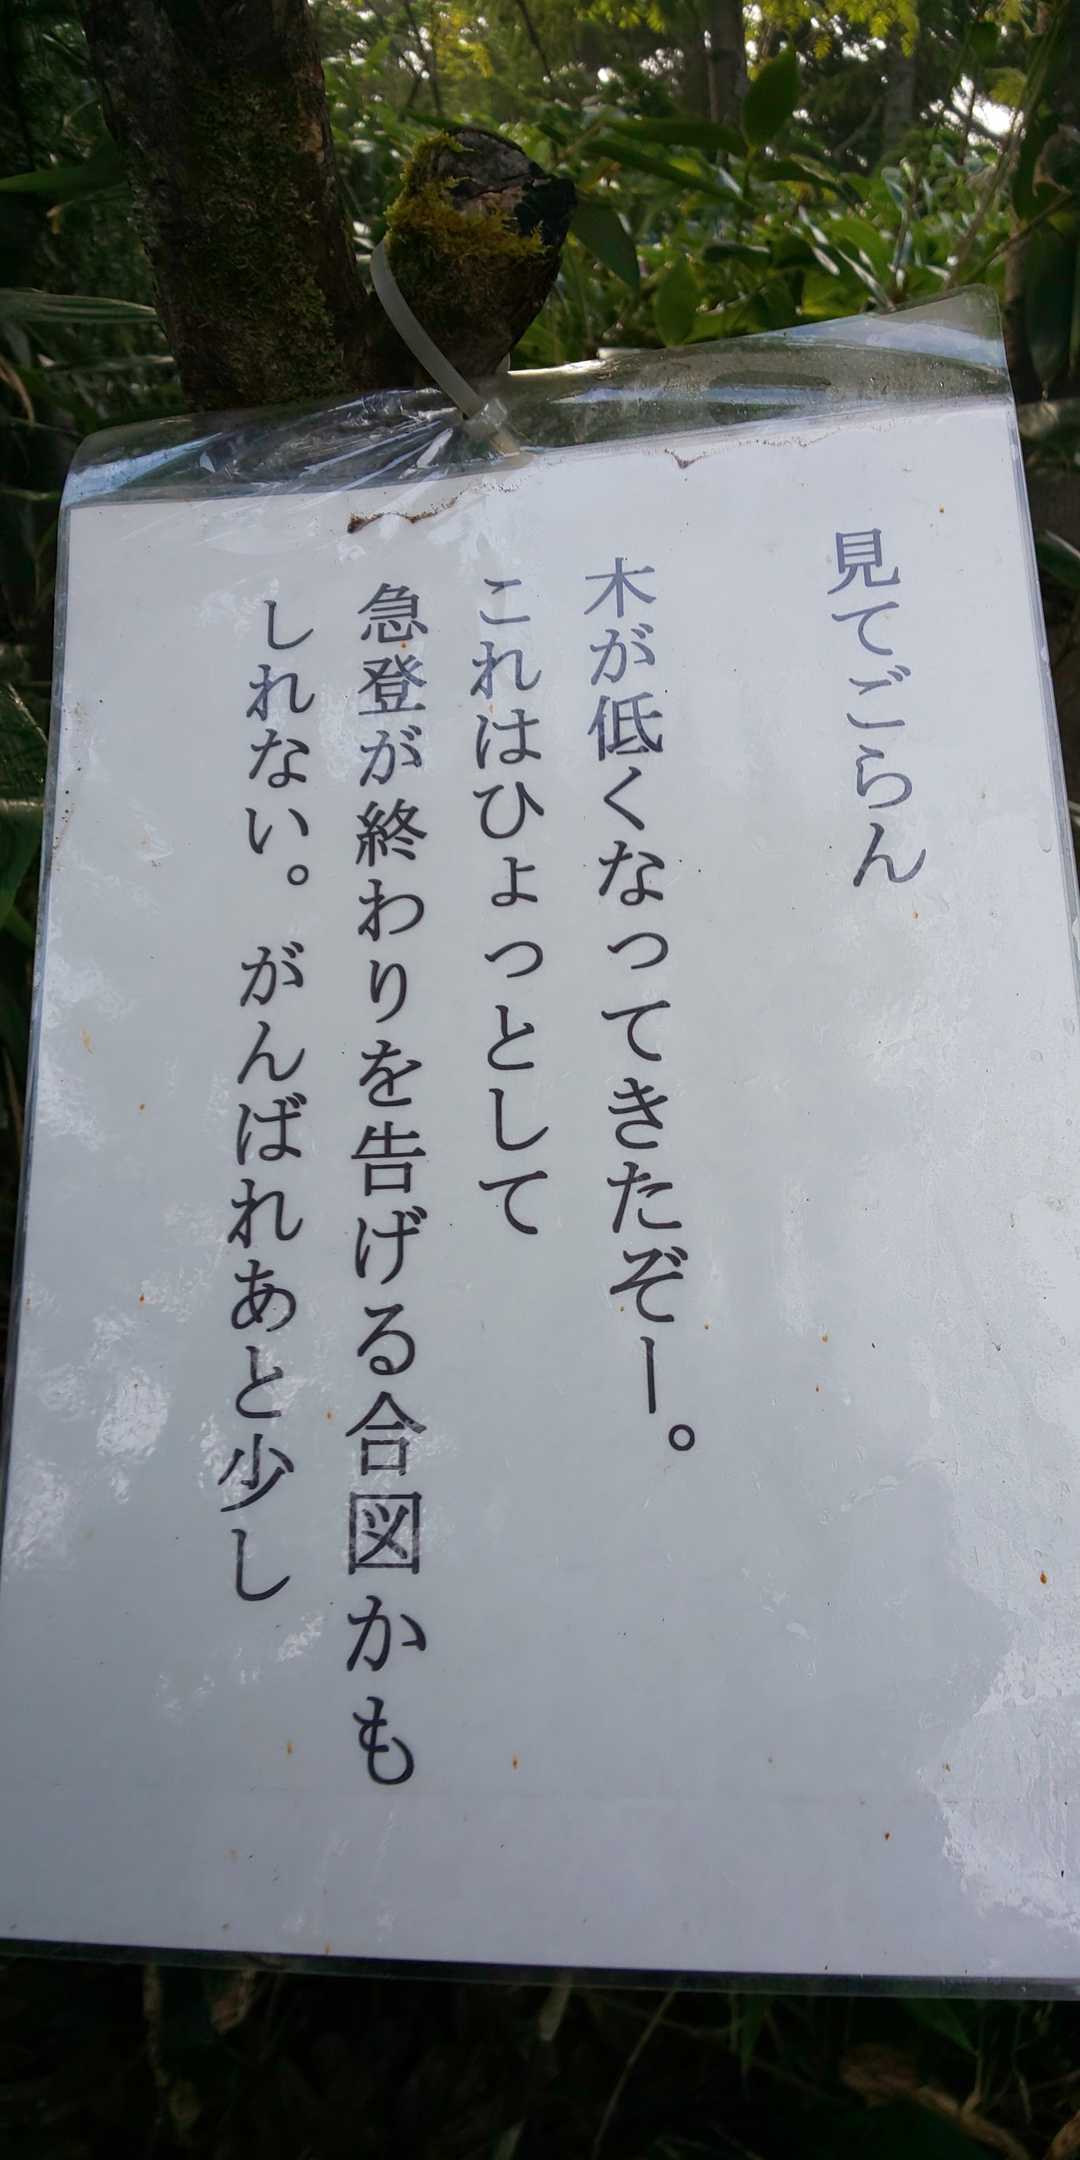 見てごらん
木が低くなってきたぞー。
これはひょっとして
急登が終わりを告げる合図かも
しれない。がんばれあと少し